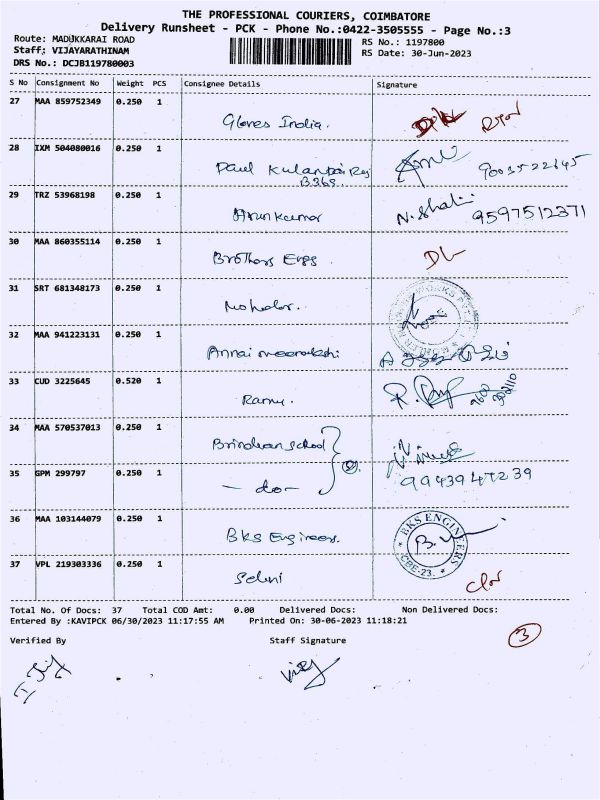 THE PROFESSIONAL COURIERS, COIMBATORE
Delivery Runsheet - PCK - Phone No.:0422-3505555 - Page No.:3
Route: MADUKKARAI ROAD
Staff: VIJAYARATHINAM
DRS No.: DCJB119780003
RS No.: 1197800
RS Date: 30-Jun-2023
S No Consignment No Weight PCS Consignee Details Signature
27 MAA 859752349 0.250 1
Gloves India.
28 IXM 504080016 0.250 1
Paul Kulantai Raj
29 TRZ 53968198 0.250 1
Arun kumar N. Shali 9597512371
30 MAA 860355114 0.250 1
Brothers Engg DL
31 SRT 681348173 0.250 1
32 MAA 941223131 0.250 1
Annai meenakshi
33 CUD 3225645 0.520 1
Ramu.
34 MAA 570537013 0.250 1
Brindhavan school
35 GPM 299797 0.250 1
- do - 9943947239
36 MAA 103144079 0.250 1
BKS Engineers. BKS ENGINEERS
CBE-23.
37 VPL 219303336 0.250 1
Selvi
Total No. Of Docs: 37 Total COD Amt: 0.00 Delivered Docs: Non Delivered Docs:
Entered By :KAVIPCK 06/30/2023 11:17:55 AM Printed On: 30-06-2023 11:18:21
3
Verified By Staff Signature